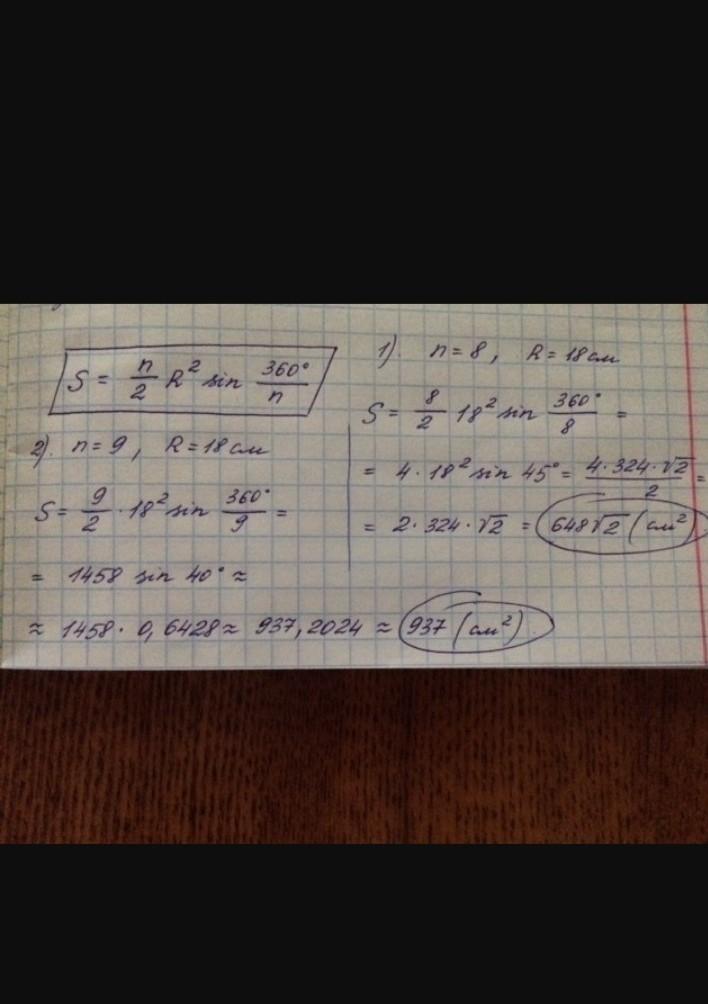 S = n/2 R² sin 360°/n
1). n = 8, R = 18 см
S = 8/2 18² sin 360°/8 =
= 4 · 18² sin 45° = 4·324·√2/2 =
= 2·324·√2 = 648√2 (см²)
2). n = 9, R = 18 см
S = 9/2 · 18² sin 360°/9 =
= 1458 sin 40° ≈
≈ 1458 · 0,6428 ≈ 937,2024 ≈ 937 (см²).